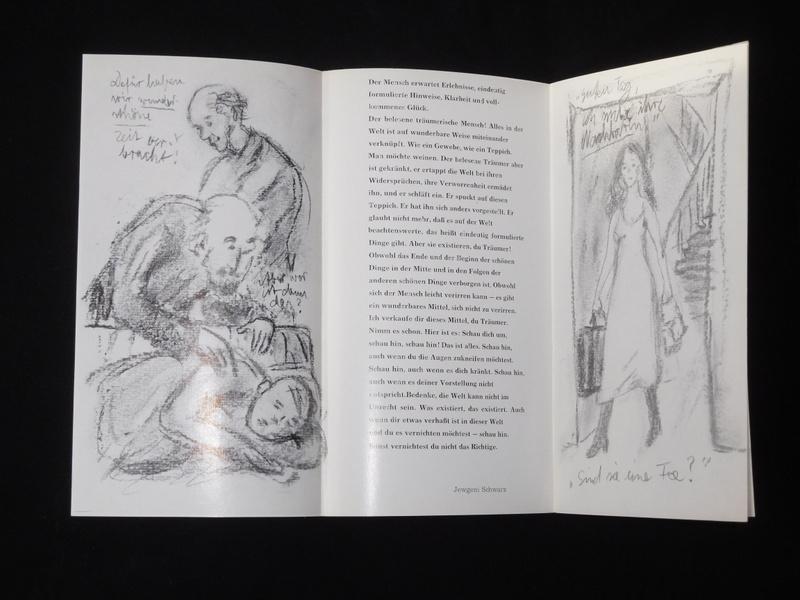 Dafür haben
wir wunder
schöne
Zeit ver-
bracht!
Aber wer
ist dann
das?
Der Mensch erwartet Erlebnisse, eindeutig
formulierte Hinweise, Klarheit und voll-
kommenes Glück.
Der belesene träumerische Mensch! Alles in der
Welt ist auf wunderbare Weise miteinander
verknüpft. Wie ein Gewebe, wie ein Teppich.
Man möchte weinen. Der belesene Träumer aber
ist gekränkt, er ertappt die Welt bei ihren
Widersprüchen, ihre Verworrenheit ermüdet
ihn, und er schläft ein. Er spuckt auf diesen
Teppich. Er hat ihn sich anders vorgestellt. Er
glaubt nicht mehr, daß es auf der Welt
beachtenswerte, das heißt eindeutig formulierte
Dinge gibt. Aber sie existieren, du Träumer!
Obwohl das Ende und der Beginn der schönen
Dinge in der Mitte und in den Folgen der
anderen schönen Dinge verborgen ist. Obwohl
sich der Mensch leicht verirren kann — es gibt
ein wunderbares Mittel, sich nicht zu verirren.
Ich verkaufe dir dieses Mittel, du Träumer.
Nimm es schon. Hier ist es: Schau dich um,
schau hin, schau hin! Das ist alles. Schau hin,
auch wenn du die Augen zukneifen möchtest.
Schau hin, auch wenn es dich kränkt. Schau hin,
auch wenn es deiner Vorstellung nicht
entspricht. Bedenke, die Welt kann nicht im
Unrecht sein. Was existiert, das existiert. Auch
wenn dir etwas verhaßt ist in dieser Welt
und du es vernichten möchtest — schau hin.
Sonst vernichtest du nicht das Richtige.
Jewgeni Schwarz
„Guten Tag,
ich bin ihre
Nachbarin"
„Sind sie eine Fee?"